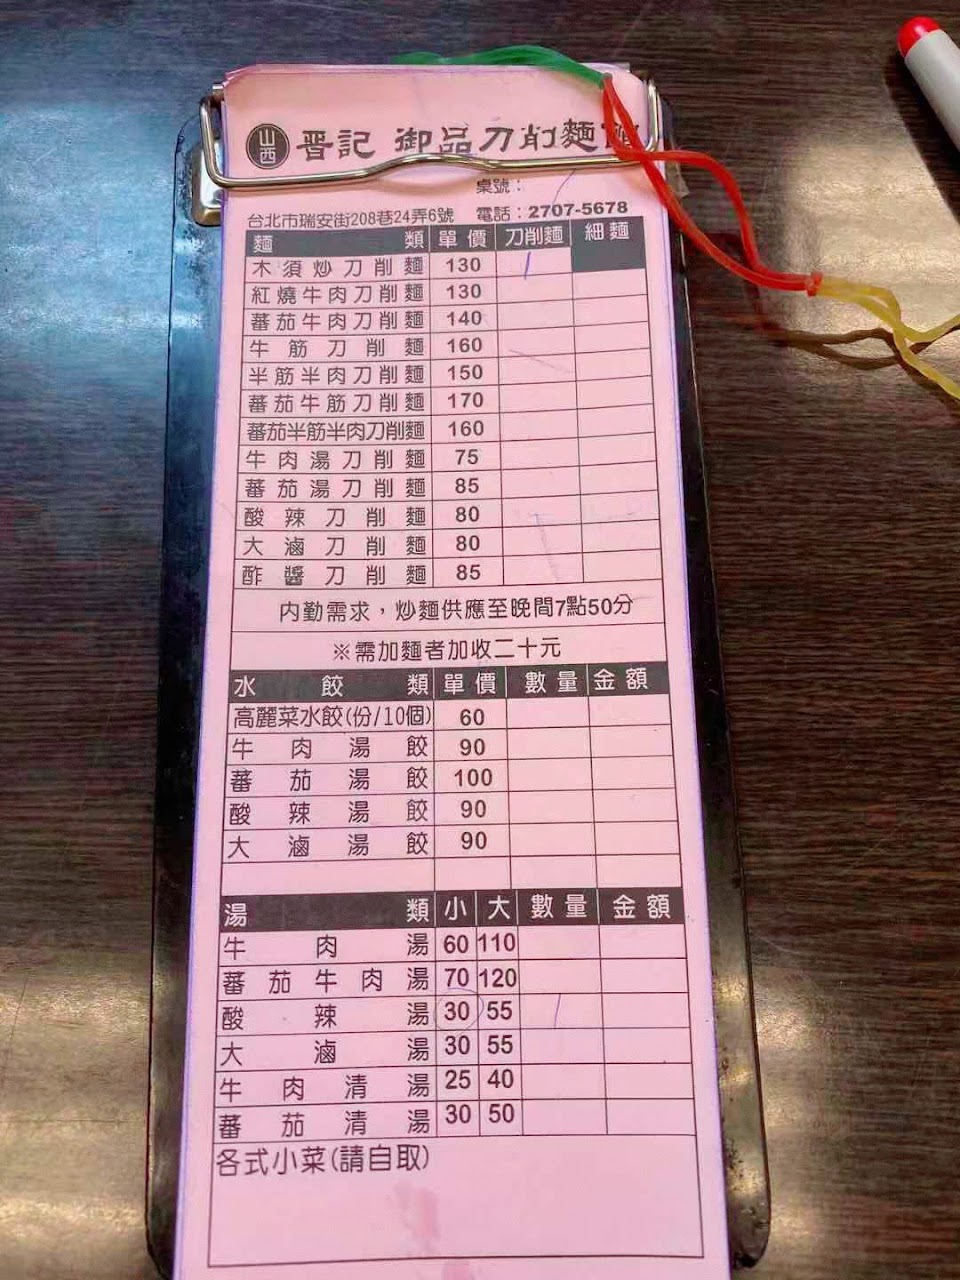 山西 晋記 御品刀削麵
桌號：
台北市瑞安街208巷24弄6號 電話：2707-5678
麵類 單價 刀削麵 細麵
木須炒刀削麵 130
紅燒牛肉刀削麵 130
蕃茄牛肉刀削麵 140
牛筋刀削麵 160
半筋半肉刀削麵 150
蕃茄牛筋刀削麵 170
蕃茄半筋半肉刀削麵 160
牛肉湯刀削麵 75
蕃茄湯刀削麵 85
酸辣刀削麵 80
大滷刀削麵 80
酢醬刀削麵 85
內勤需求，炒麵供應至晚間7點50分
※需加麵者加收二十元
水餃類 單價 數量 金額
高麗菜水餃(份/10個) 60
牛肉湯餃 90
蕃茄湯餃 100
酸辣湯餃 90
大滷湯餃 90
湯類 小 大 數量 金額
牛肉湯 60 110
蕃茄牛肉湯 70 120
酸辣湯 30 55
大滷湯 30 55
牛肉清湯 25 40
蕃茄清湯 30 50
各式小菜(請自取)